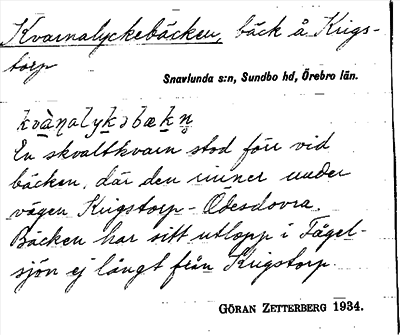 Kvarnalyckebäcken, bäck å Krigs-
torp
Snavlunda s:n, Sundbo hd, Örebro län.
En skvaltkvarn stod förr vid
bäcken, där den rinner under
vägen Krigstorp - Odesdovra.
Bäcken har sitt utlopp i Fågel-
sjön ej långt från Krigstorp.
GÖRAN ZETTERBERG 1934.